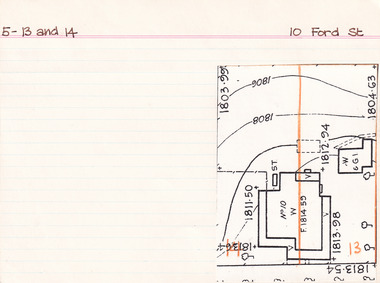 5-13 and 14
10 Ford St
1803.99
1806
1804.63
1808
1812.94
ST.
V
W
G.I
1811.50
No 10
W
F.1814.55
V
1813.98
14
13
V
1813.54